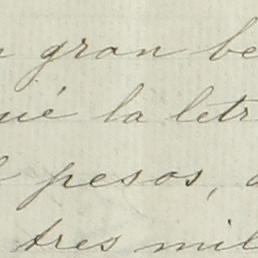 n gran be
ué la letr
l pesos, a
tres mil